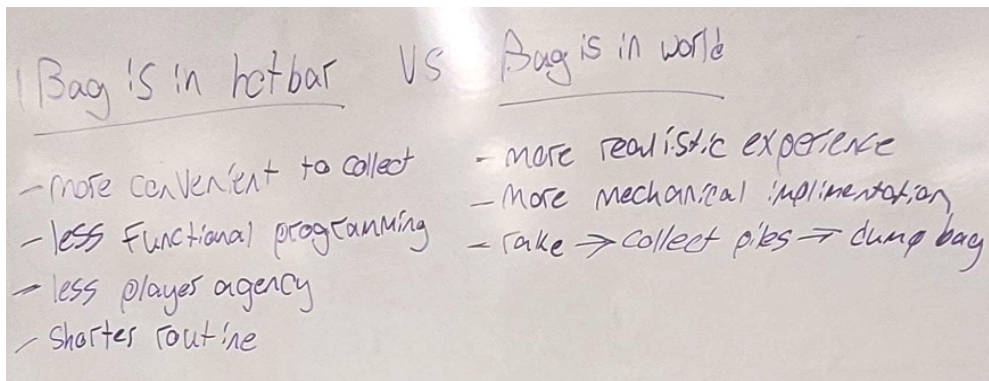 Bag is in hotbar VS Bag is in world
- more convenient to collect
- less functional programming
- less player agency
- shorter routine
- more realistic experience
- More mechanical implimentation
- rake → collect piles → dump bag